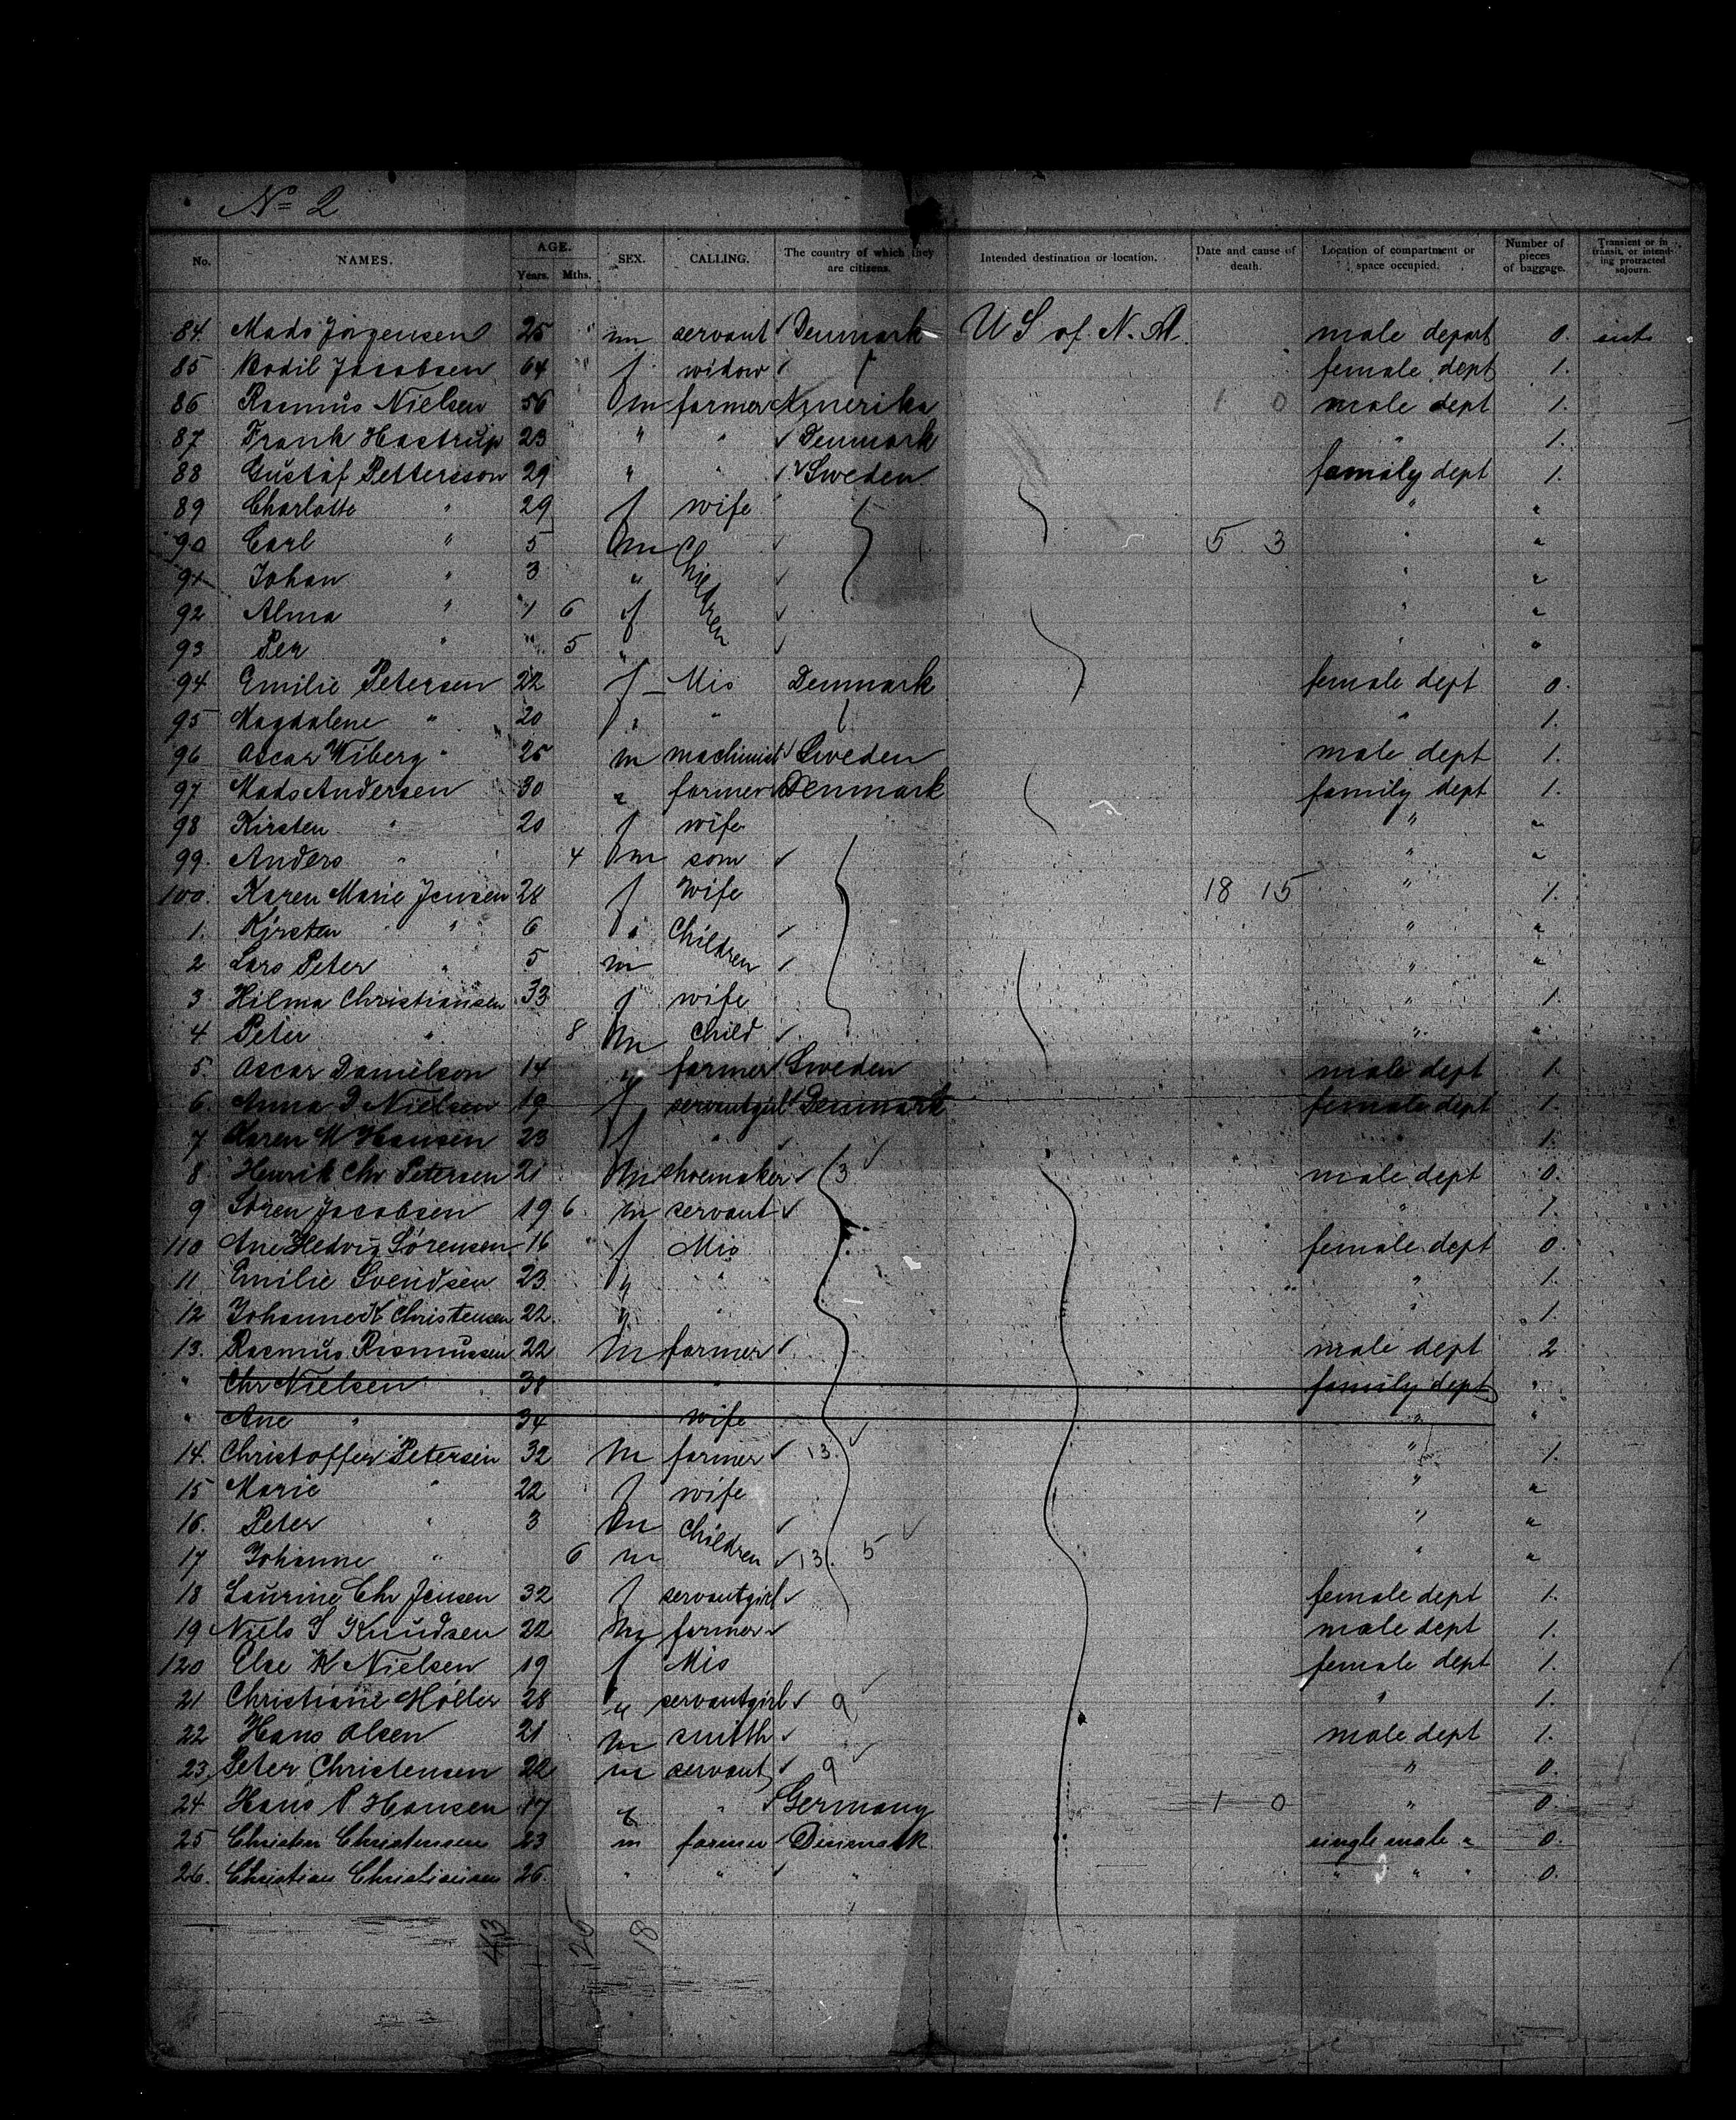 Nº 2
No. NAMES. AGE. Years. Mths. SEX. CALLING. The country of which they are citizens. Intended destination or location. Date and cause of death. Location of compartment or space occupied. Number of pieces of baggage. Transient or in transit, or intending protracted sojourn.
84. Mads Jørgensen 25 m servant Denmark U S of N. A. male depart 0.
85 Bodil Jacobsen 64 f. widow female dept 1.
86 Rasmus Nielsen 56 m farmer Amerika 1 0 male dept 1.
87 Frank Hastrup 23 " " Denmark " 1.
88 Gustaf Pettersson 29 " " Sweden family dept 1.
89 Charlotte " 29 f wife " "
90 Carl " 5 m children 5 3 " "
91 Johan " 3 " " "
92 Alma " 1 6 f " "
93 Per " " 5 " " "
94 Emilie Petersen 22 f Mis Denmark female dept 0.
95 Magdalene " 20 " " " 1.
96 Oscar Wiberg 25 m machinist Sweden male dept 1.
97 Mads Andersen 30 " farmer Denmark family dept 1.
98 Kirsten " 20 f wife " "
99. Anders " 4 m som " "
100. Karen Marie Jensen 28 f wife 18 15 " 1.
1. Kirsten " 6 " Children " "
2 Lars Peter " 5 m " "
3. Hilma Christiansen 33 f wife " 1.
4 Peter " 8 m child " "
5. Oscar Danielson 14 " farmer Sweden male dept 1.
6. Anna D Nielsen 19 f servantgirl Denmark female dept 1.
7 Karen M Hansen 23 f " " 1.
8 Henrik Chr Petersen 21 m shoemaker 3 male dept 0.
9 Søren Jacobsen 19 6. m servant " 1.
110 Ane Hedvig Sørensen 16 f Mis female dept 0.
11. Emilie Svendsen 23. " " " 1.
12 Johanne K Christensen 22. " " " 1.
13. Rasmus Rasmussen 22 m farmer male dept 2
" Chr Nielsen 38 " family dept "
" Ane " 34 wife " "
14. Christoffer Petersen 32 m farmer 13. " 1.
15 Marie " 22 f wife " "
16. Peter " 3 m Children " "
17 Johanne " 6 m 13. 5 " "
18 Laurine Chr Jensen 32 f servantgirl female dept 1.
19 Niels S Knudsen 22 m farmer male dept 1.
120 Else K Nielsen 19 f Mis female dept 1.
21 Christiane Møller 28 " servantgirl 9 " 1.
22 Hans Olsen 21 m smith male dept 1.
23. Peter Christensen 22 m servant 9 " 0.
24 Hans P Hansen 17 " " Germany 1 0 " 0.
25 Christen Christensen 23 m farmer Denmark single male " 0.
26. Christian Christiansen 26. " " " " " " 0.
43 25 18